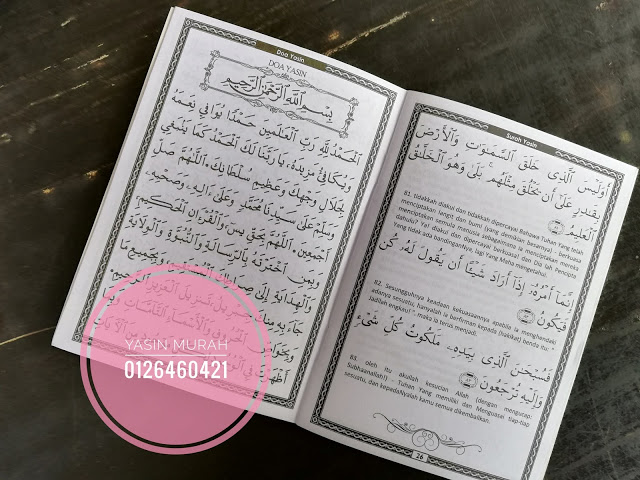 Doa Yasin
DOA YASIN
بِسْمِ ٱللَّهِ ٱلرَّحْمَٰنِ ٱلرَّحِيمِ
الْحَمْدُ لِلَّهِ رَبِّ الْعَالَمِينَ حَمْدًا يُوَافِي نِعَمَهُ
وَيُكَافِئُ مَزِيدَهُ، يَا رَبَّنَا لَكَ الْحَمْدُ كَمَا يَنْبَغِي
لِجَلَالِ وَجْهِكَ وَعَظِيمِ سُلْطَانِكَ، اللَّهُمَّ صَلِّ
وَسَلِّمْ عَلَى سَيِّدِنَا مُحَمَّدٍ وَعَلَى آلِهِ وَصَحْبِهِ
أَجْمَعِينَ، اللَّهُمَّ بِحَقِّ يس وَالْقُرْآنِ الْحَكِيمِ
وَبِمَنِ اخْتَرْتَهُ بِالرِّسَالَةِ وَالنُّبُوَّةِ وَالْوِلَايَةِ
وَالْهِدَايَةِ إِلَى
YASIN MURAH
0126460421
Surah Yasin
أَوَلَيْسَ ٱلَّذِى خَلَقَ ٱلسَّمَٰوَٰتِ وَٱلْأَرْضَ
بِقَٰدِرٍ عَلَىٰٓ أَن يَخْلُقَ مِثْلَهُم ۚ بَلَىٰ وَهُوَ ٱلْخَلَّٰقُ
ٱلْعَلِيمُ
81. tidakkah diakui dan tidakkah dipercayai Bahawa Tuhan Yang telah
menciptakan langit dan bumi (yang demikian besarnya) berkuasa
menciptakan semula manusia sebagaimana ia menciptakan mereka
dahulu? Ya! diakui dan dipercayai berkuasa! dan Dia lah Pencipta
Yang tidak ada bandinganNya, lagi Yang Maha mengetahui.
إِنَّمَآ أَمْرُهُۥٓ إِذَآ أَرَادَ شَيْـًٔا أَن يَقُولَ لَهُۥ كُن
فَيَكُونُ
82. Sesungguhnya keadaan kekuasaannya apabila ia menghendaki
adanya sesuatu, hanyalah ia berfirman kepada (hakikat) benda itu: "
Jadilah engkau! ". maka ia terus menjadi.
فَسُبْحَٰنَ ٱلَّذِى بِيَدِهِۦ مَلَكُوتُ كُلِّ شَىْءٍ
وَإِلَيْهِ تُرْجَعُونَ
83. oleh itu akuilah kesucian Allah (dengan mengucap:
Subhaanallah!) - Tuhan Yang memiliki dan Menguasai tiap-tiap
sesuatu, dan kepadaNyalah kamu semua dikembalikan.
26